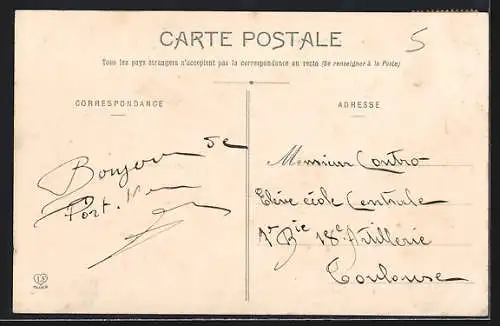 CARTE POSTALE
5
Tous les pays étrangers n'acceptent pas la correspondance au recto (Se renseigner à la Poste)
CORRESPONDANCE
ADRESSE
Bonjour de
Port-
Monsieur Contro
Elève école Centrale
1re Bie 18e Artillerie
Toulouse